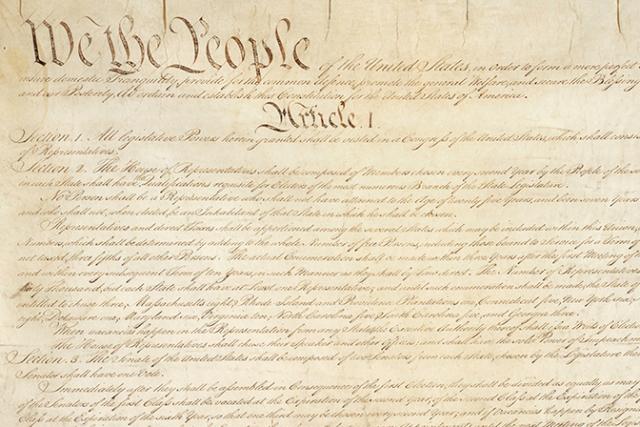 We the People of the United States, in order to form a more perfect
insure domestic Tranquility, provide for the common defence, promote the general Welfare, and secure the Blessing
and our Posterity, do ordain and establish this Constitution for the United States of America.
Article. I.
Section. 1. All legislative Powers herein granted shall be vested in a Congress of the United States, which shall cons
of Representatives.
Section. 2. The House of Representatives shall be composed of Members chosen every second Year by the People of the seve
in each State shall have Qualifications requisite for Electors of the most numerous Branch of the State Legislature.
No Person shall be a Representative who shall not have attained to the Age of twenty five Years, and been seven Years
and who shall not, when elected, be an Inhabitant of that State in which he shall be chosen.
Representatives and direct Taxes shall be apportioned among the several States which may be included within this Union,
Numbers, which shall be determined by adding to the whole Number of free Persons, including those bound to Service for a Term
not taxed, three fifths of all other Persons. The actual Enumeration shall be made within three Years after the first Meeting of
and within every subsequent Term of ten Years, in such Manner as they shall by Law direct. The Number of Representatives
thirty Thousand, but each State shall have at Least one Representative; and until such enumeration shall be made, the State of
entitled to chuse three, Massachusetts eight, Rhode Island and Providence Plantations one, Connecticut five, New York six,
eight, Delaware one, Maryland six, Virginia ten, North Carolina five, South Carolina five, and Georgia three.
When vacancies happen in the Representation from any State, the Executive Authority thereof shall issue Writs of Election
The House of Representatives shall chuse their Speaker and other Officers; and shall have the sole Power of Impeachment
Section. 3. The Senate of the United States shall be composed of two Senators from each State, chosen by the Legislature the
Senator shall have one Vote.
Immediately after they shall be assembled in Consequence of the first Election, they shall be divided as equally as may
of the Senators of the first Class shall be vacated at the Expiration of the second Year, of the second Class at the Expiration of the
Class at the Expiration of the sixth Year, so that one third may be chosen every second Year; and if Vacancies happen by Resign